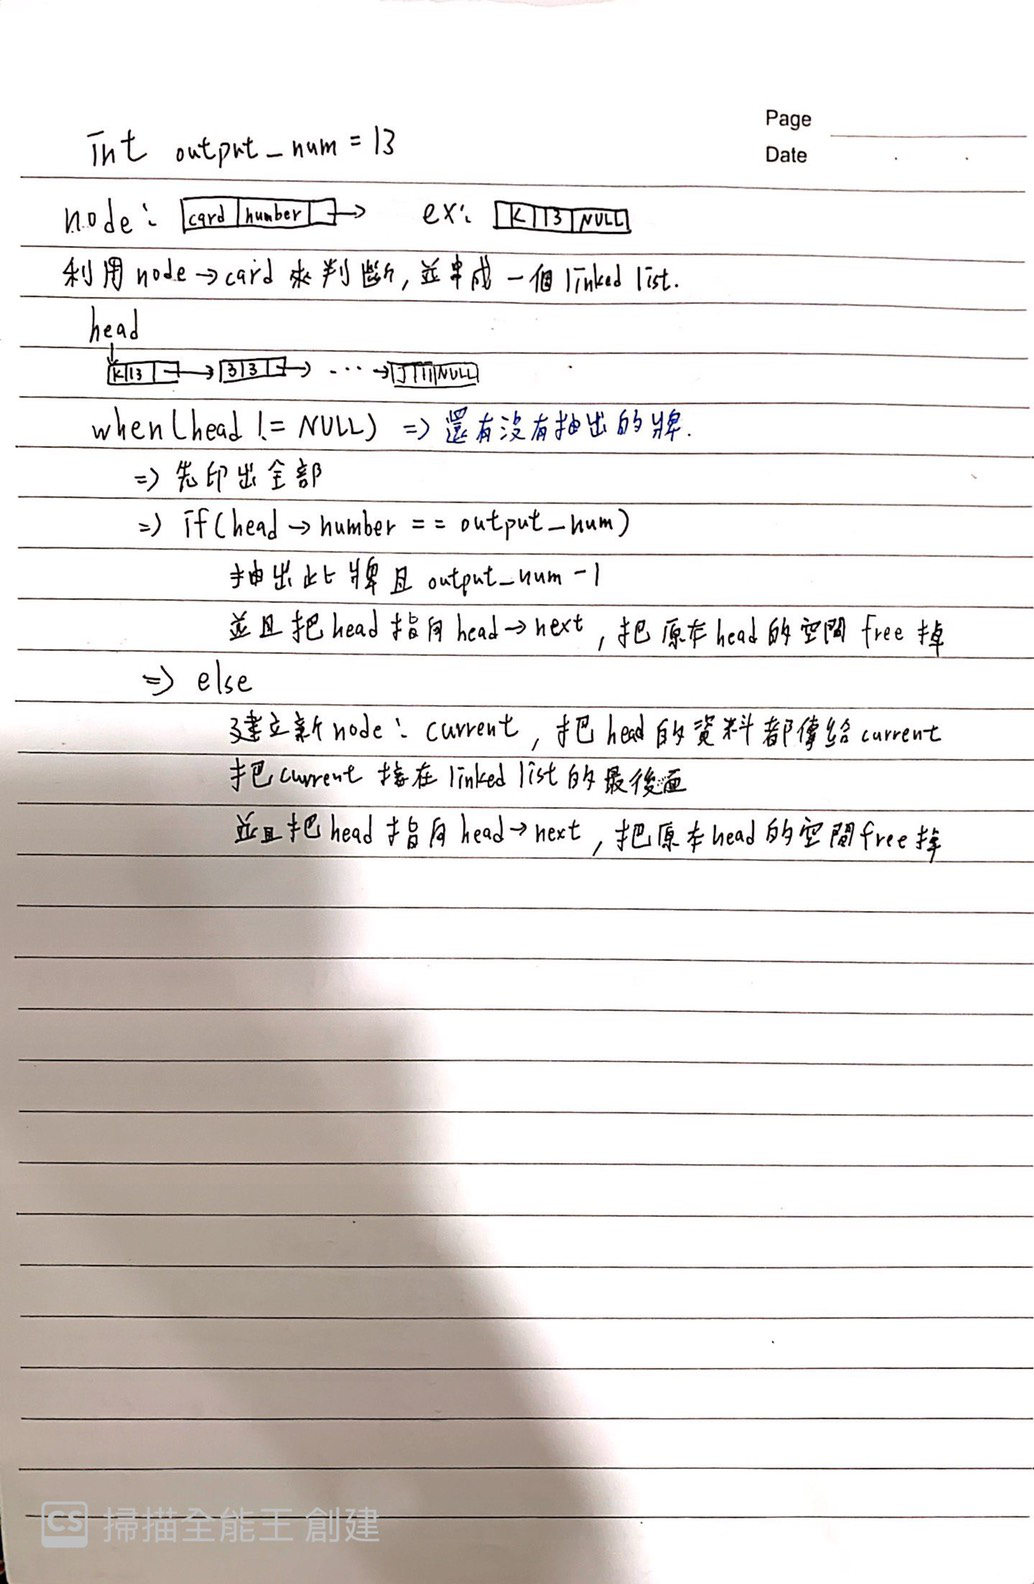 Page
Date
int output_num = 13
node: card number → ex: K 13 NULL
利用 node → card 來判斷, 並串成一個 linked list.
head
K 13 → 3 3 → ... → J 11 NULL
when(head != NULL) => 還有沒有抽出的牌.
=> 先印出全部
=> if(head → number == output_num)
抽出此牌且 output_num -1
並且把 head 指向 head → next, 把原本 head 的空間 free 掉
=> else
建立新 node: current, 把 head 的資料都傳給 current
把 current 接在 linked list 的最後面
並且把 head 指向 head → next, 把原本 head 的空間 free 掉
CS 掃描全能王 創建